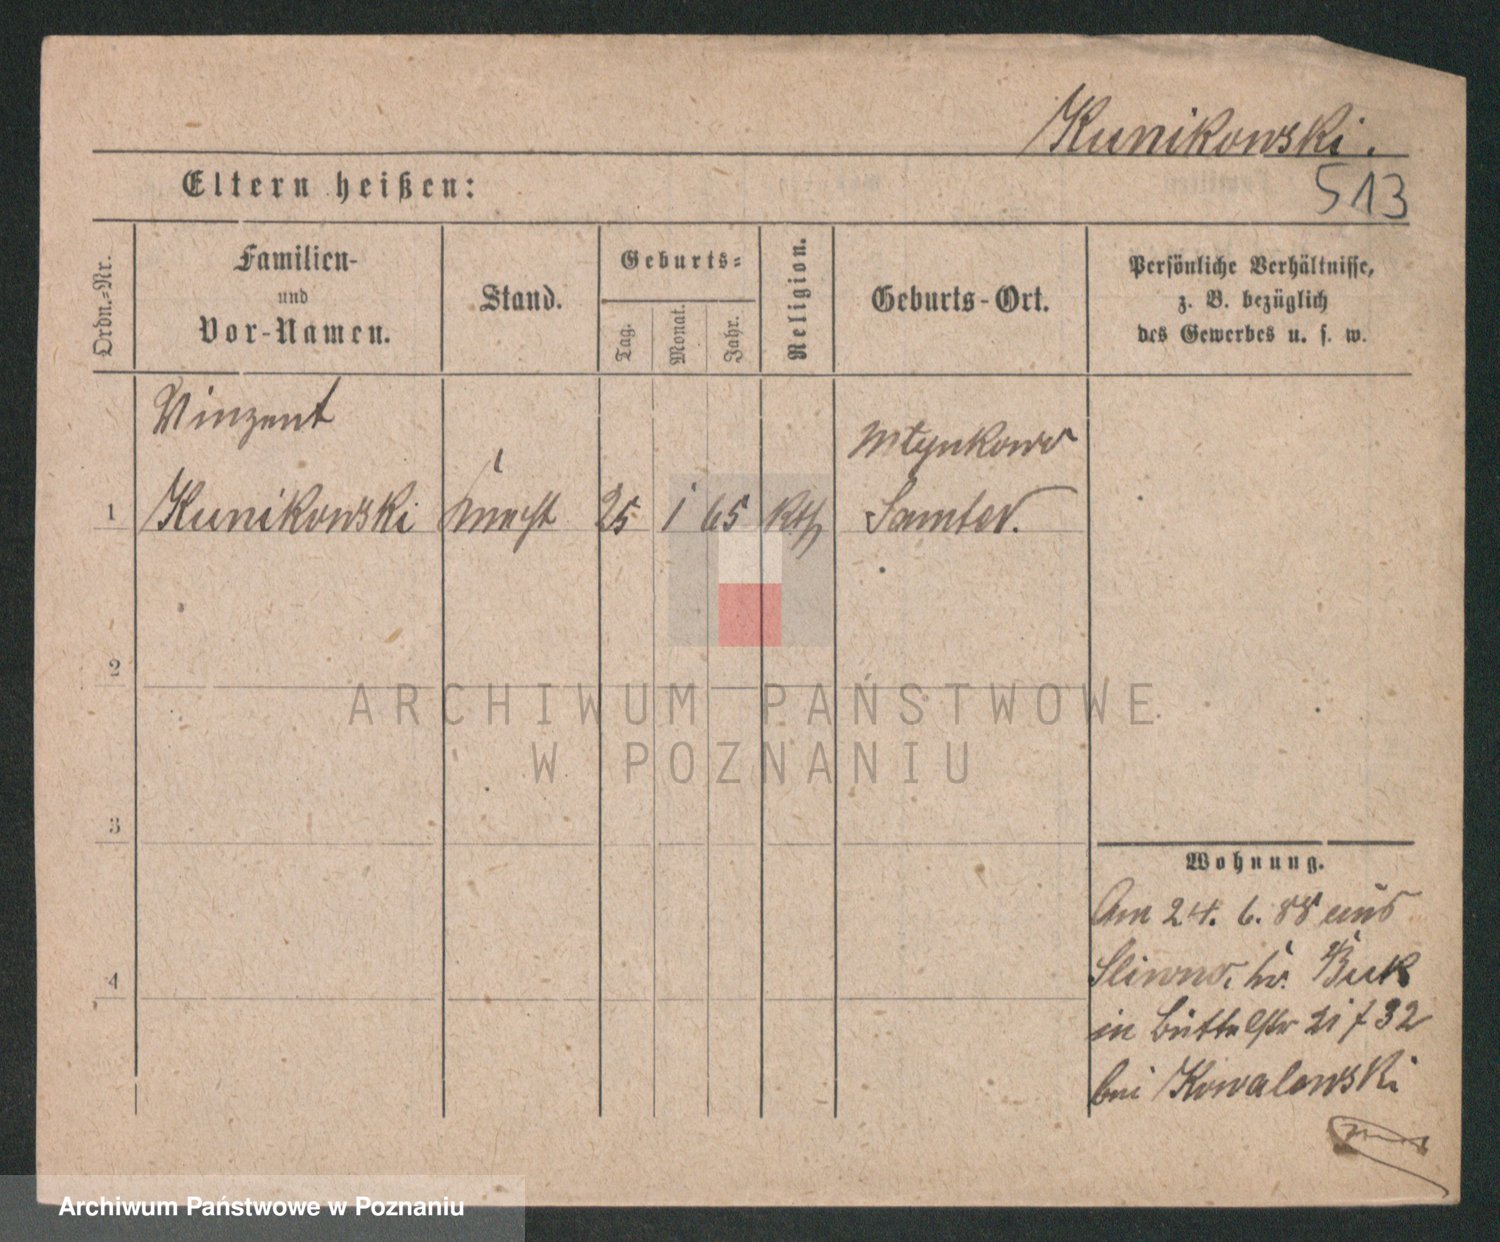 Kunikowski.
513
Eltern heißen:
Ordn.-Nr.
Familien-
und
Vor-Namen.
Stand.
Geburts-
Tag.
Monat.
Jahr.
Religion.
Geburts-Ort.
Persönliche Verhältnisse,
z. B. bezüglich
des Gewerbes u. s. w.
Vinzent
Młynkowo
1 Kunikowski Knecht 25 1 65 kth Samter.
2
ARCHIWUM PAŃSTWOWE
W POZNANIU
3
4
Wohnung.
Am 24. 6. 88 aus
Sliwno, Kr. Buk
in Büttelstr 21 f 32
bei Kowalewski
Archiwum Państwowe w Poznaniu